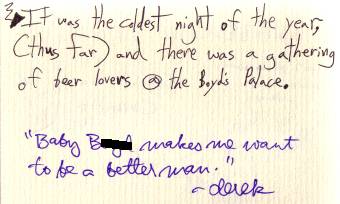 It was the coldest night of the year,
(thus far) and there was a gathering
of beer lovers @ the Boyd's Palace.
"Baby makes me want
to be a better man."
~derek